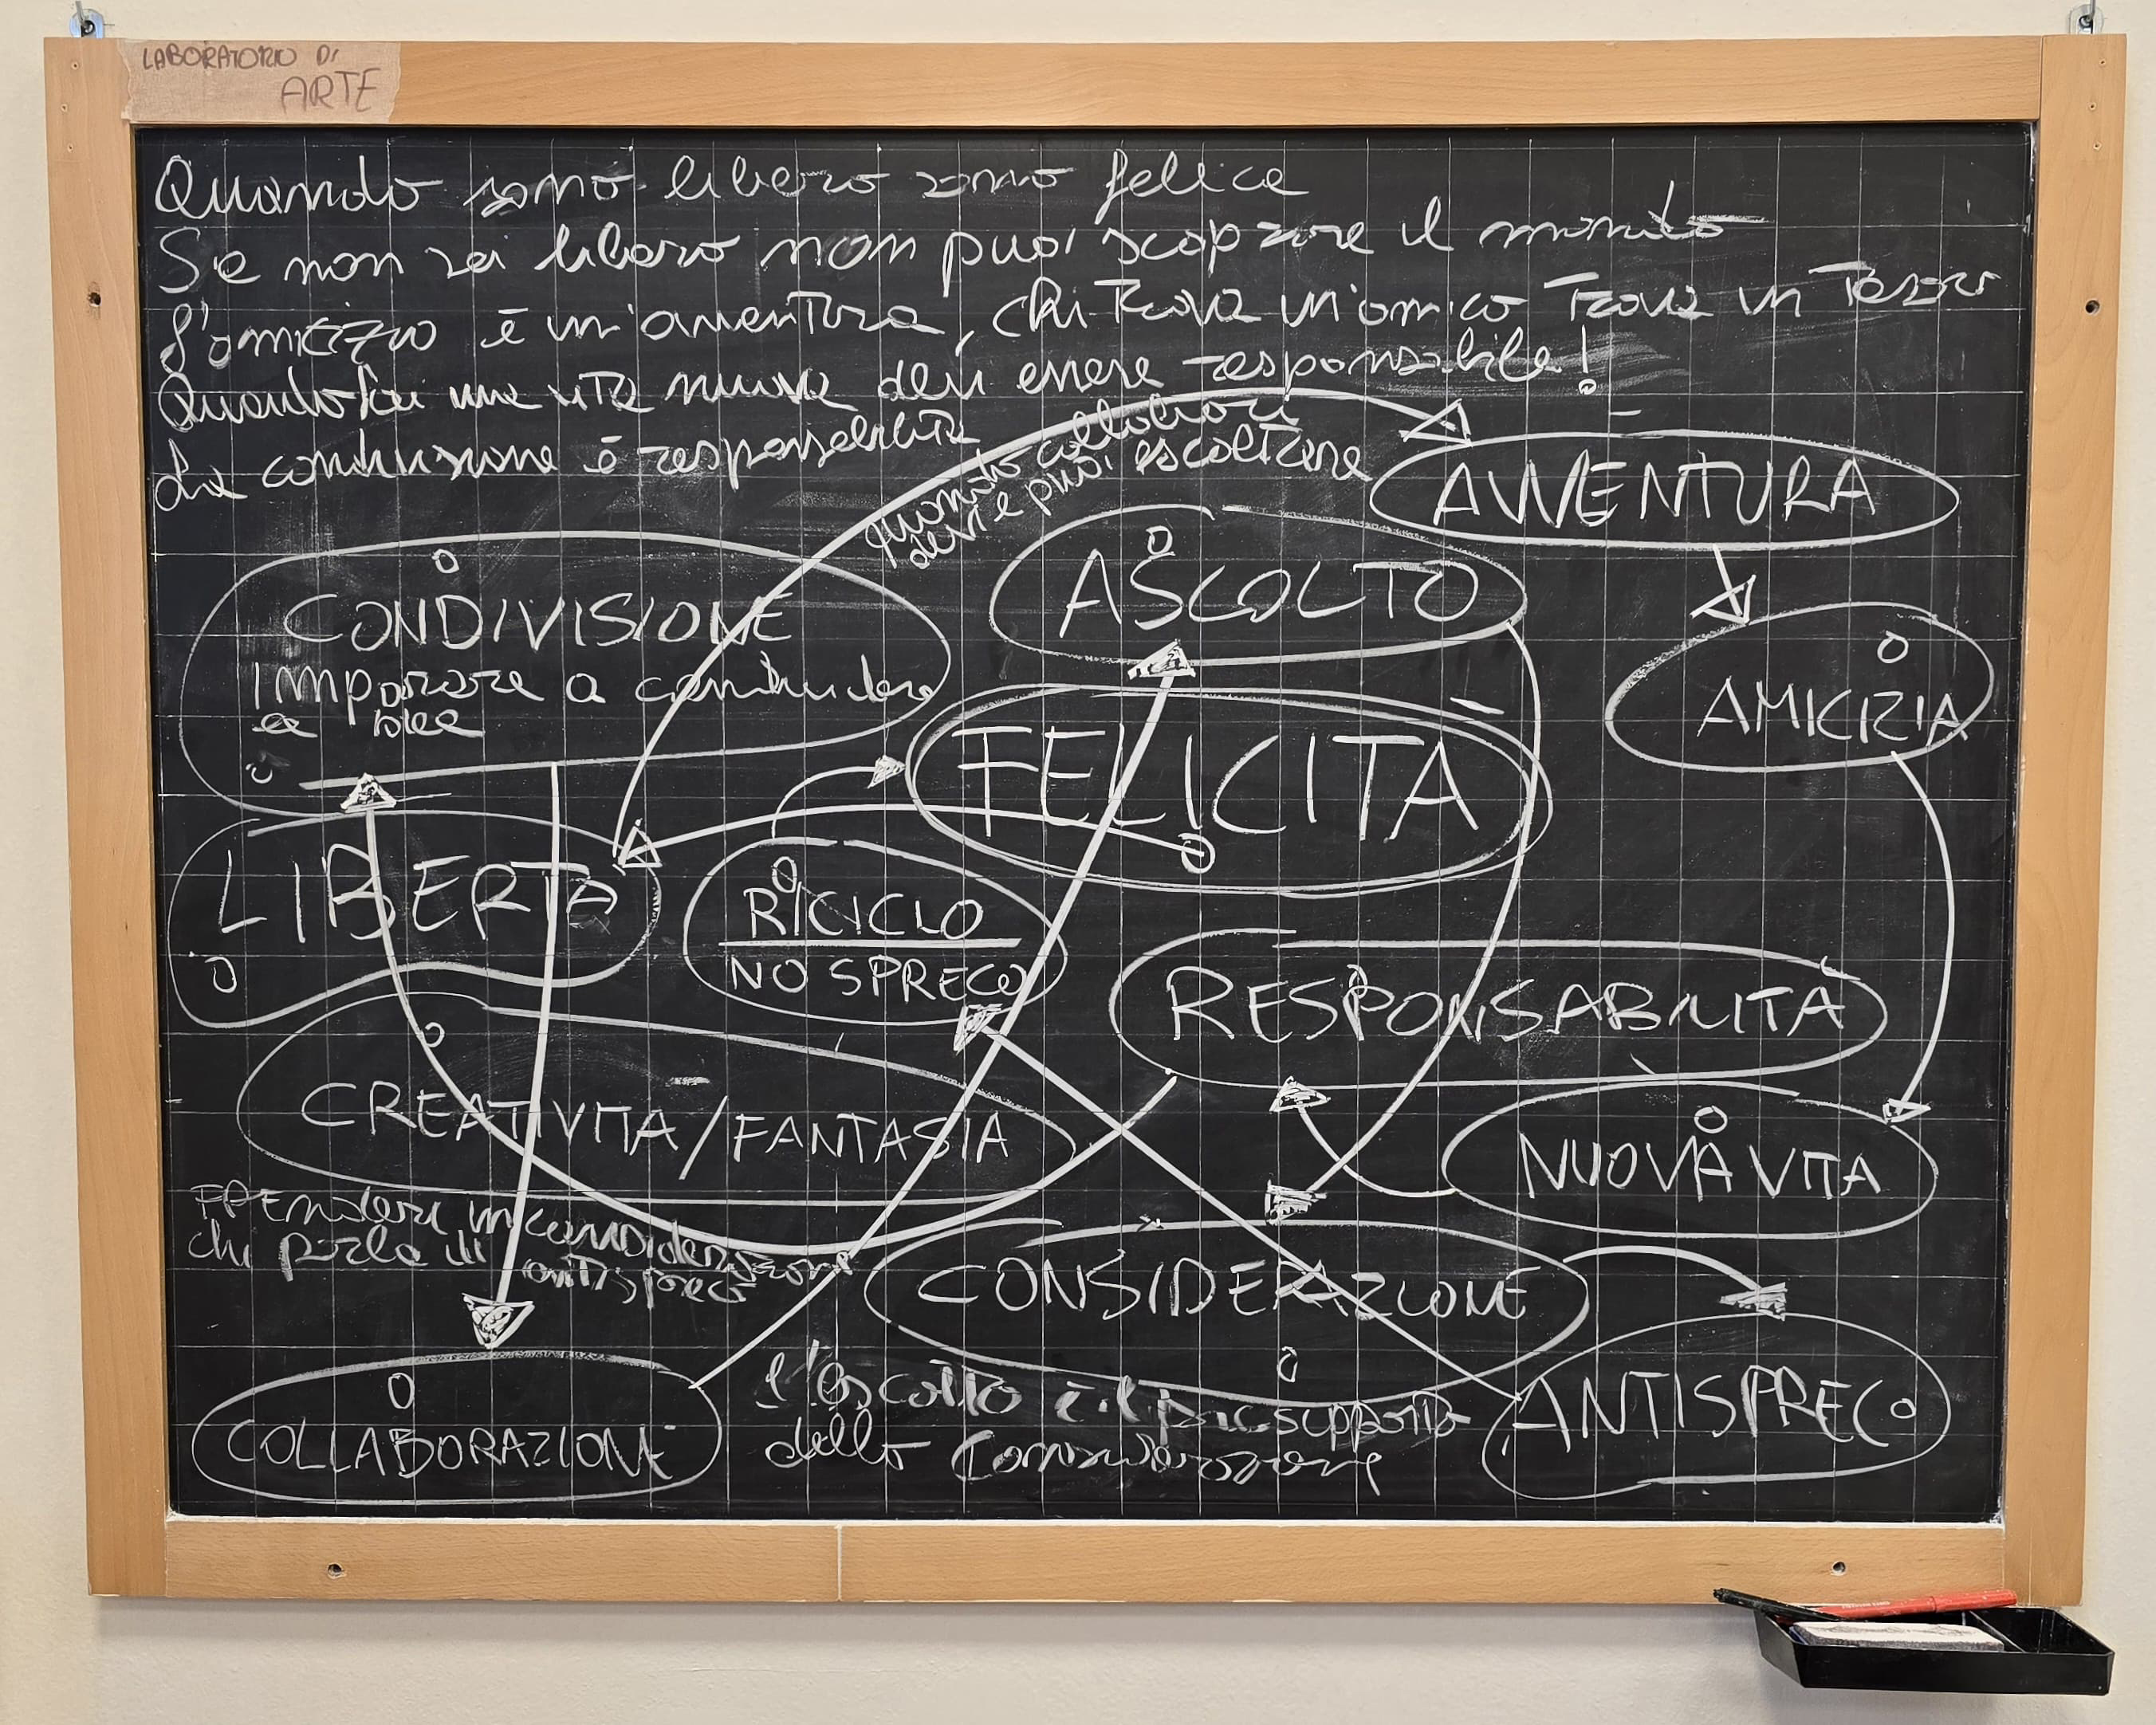 LABORATORIO DI
ARTE
Quando sono libero sono felice
Se non sei libero non puoi scoprire il mondo
L'amicizia è un'avventura, chi trova un amico trova un tesoro
Quando hai una vita nuova devi essere responsabile!
La condivisione è responsabilità
quando collabori
devi e puoi ascoltare
AVVENTURA
ASCOLTO
CONDIVISIONE
IMparare a condividere
le idee
AMICIZIA
FELICITA
LIBERTA
RICICLO
NO SPRECO
RESPONSABILITA
CREATIVITA/FANTASIA
NUOVA VITA
PRENDERE in considerazione
chi parla di antispreco
CONSIDERAZIONE
ANTISPRECO
COLLABORAZIONE
l'ascolto è il presupposto
della considerazione